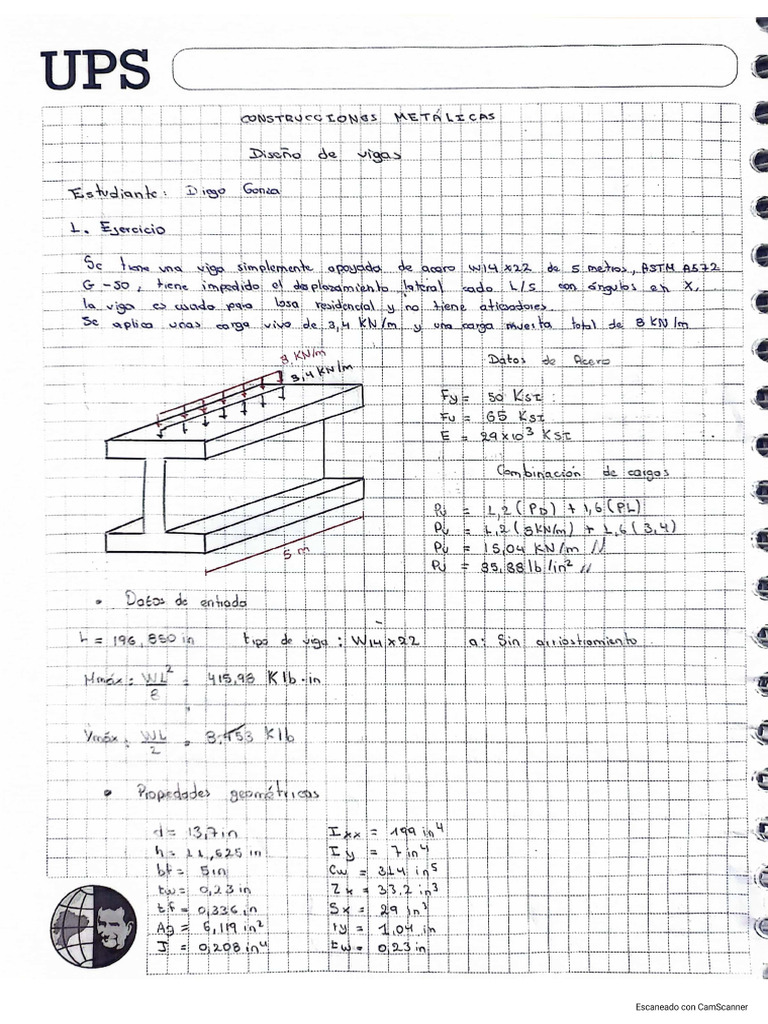 UPS
CONSTRUCCIONES METÁLICAS
Diseño de vigas
Estudiante: Diego Gonza
1. Ejercicio
Se tiene una viga simplemente apoyada de acero W14x22 de 5 metros, ASTM A572
G-50, tiene impedido el desplazamiento lateral cada L/5 con ángulos en X,
la viga es usada para losa residencial y no tiene atiesadores.
Se aplica unas carga viva de 3,4 KN/m y una carga muerta total de 8 KN/m
8 KN/m
3,4 KN/m
5 m
Datos de Acero
Fy = 50 KSI
Fu = 65 KSI
E = 29x10³ KSI
Combinación de cargas
Pu = 1,2(PD) + 1,6(PL)
Pu = 1,2(8KN/m) + 1,6(3,4)
Pu = 15,04 KN/m //
Pu = 85,88 lb/in² //
• Datos de entrada
L = 196,850 in tipo de viga: W14x22 a: Sin arriostramiento
Mmáx: WL²/8 = 415,98 Klb·in
Vmáx: WL/2 = 8,453 Klb
• Propiedades geométricas
d = 13,7in
h = 11,625 in
bf = 5in
tw = 0,23 in
tf = 0,336 in
Ag = 6,119 in²
J = 0,208 in⁴
Ixx = 199 in⁴
Iy = 7 in⁴
Cw = 314 in⁵
Zx = 33,2 in³
Sx = 29 in³
ry = 1,04 in
tw = 0,23 in
Escaneado con CamScanner